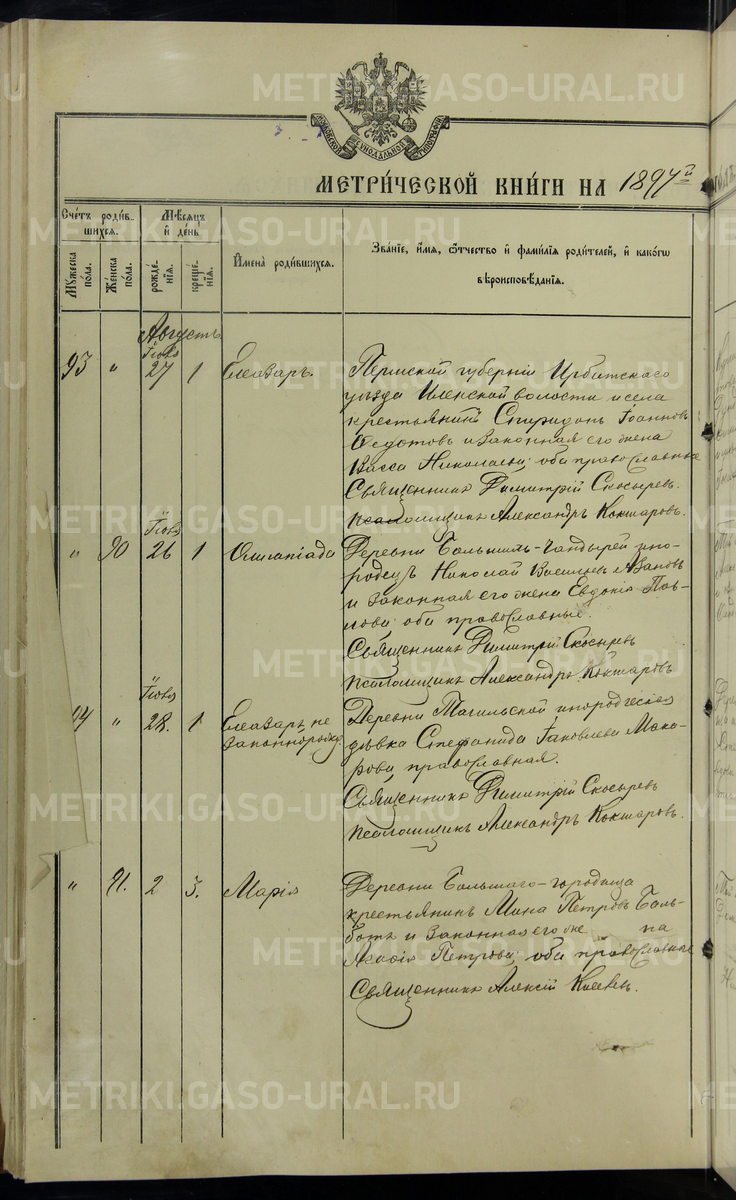 МЕТРИ́ЧЕСКОЙ КНИ́ГИ НА 1897й
Сче́тъ роди́в-
шихся.
Мѣ́сяцъ
и̑ де́нь
И̑мена̀ роди́вшихся.
Зва́нїе, и̑́мя, ѻ҆́тчество и̑ фами́лїѧ роди́телей, и̑ како́гѡ
вѣроисповѣ́данїѧ.
Му́жеска
по́ла.
Же́нска
по́ла.
рожде́-
нїя.
креще́-
нїя.
Августъ
Іюля
93 " 27 1 Елеазаръ.
Пермской губерніи Ирбитскаго
уѣзда Иленской волости и села
крестьянинъ Спиридонъ Іоанновъ
Ѳедотовъ и законная его жена
Васса Николаева; оба православные
Священникъ Димитрій Скосыревъ.
Псаломщикъ Александръ Кокшаровъ.
Іюля
" 90 26 1 Олимпіада
Деревни Большихъ-Чандырей ино-
родецъ Николай Васильевъ Азановъ
и законная его жена Евдокія Пав-
лова; оба православные.
Священникъ Димитрій Скосыревъ
Псаломщикъ Александръ Кокшаровъ
Іюля
94 " 28. 1 Елеазаръ не
законнорожд.
Деревни Тагильской инородческая
дѣвка Стефанида Іаковлева Мака-
рова православная.
Священникъ Димитрій Скосыревъ
Псаломщикъ Александръ Кокшаровъ.
" 91. 2 3. Марія
Деревни Большаго-городища
крестьянинъ Мина Петровъ Боль-
и законная его же на
Петрова; оба православные
Священникъ Алексій
METRIKI.GASO-URAL.RU